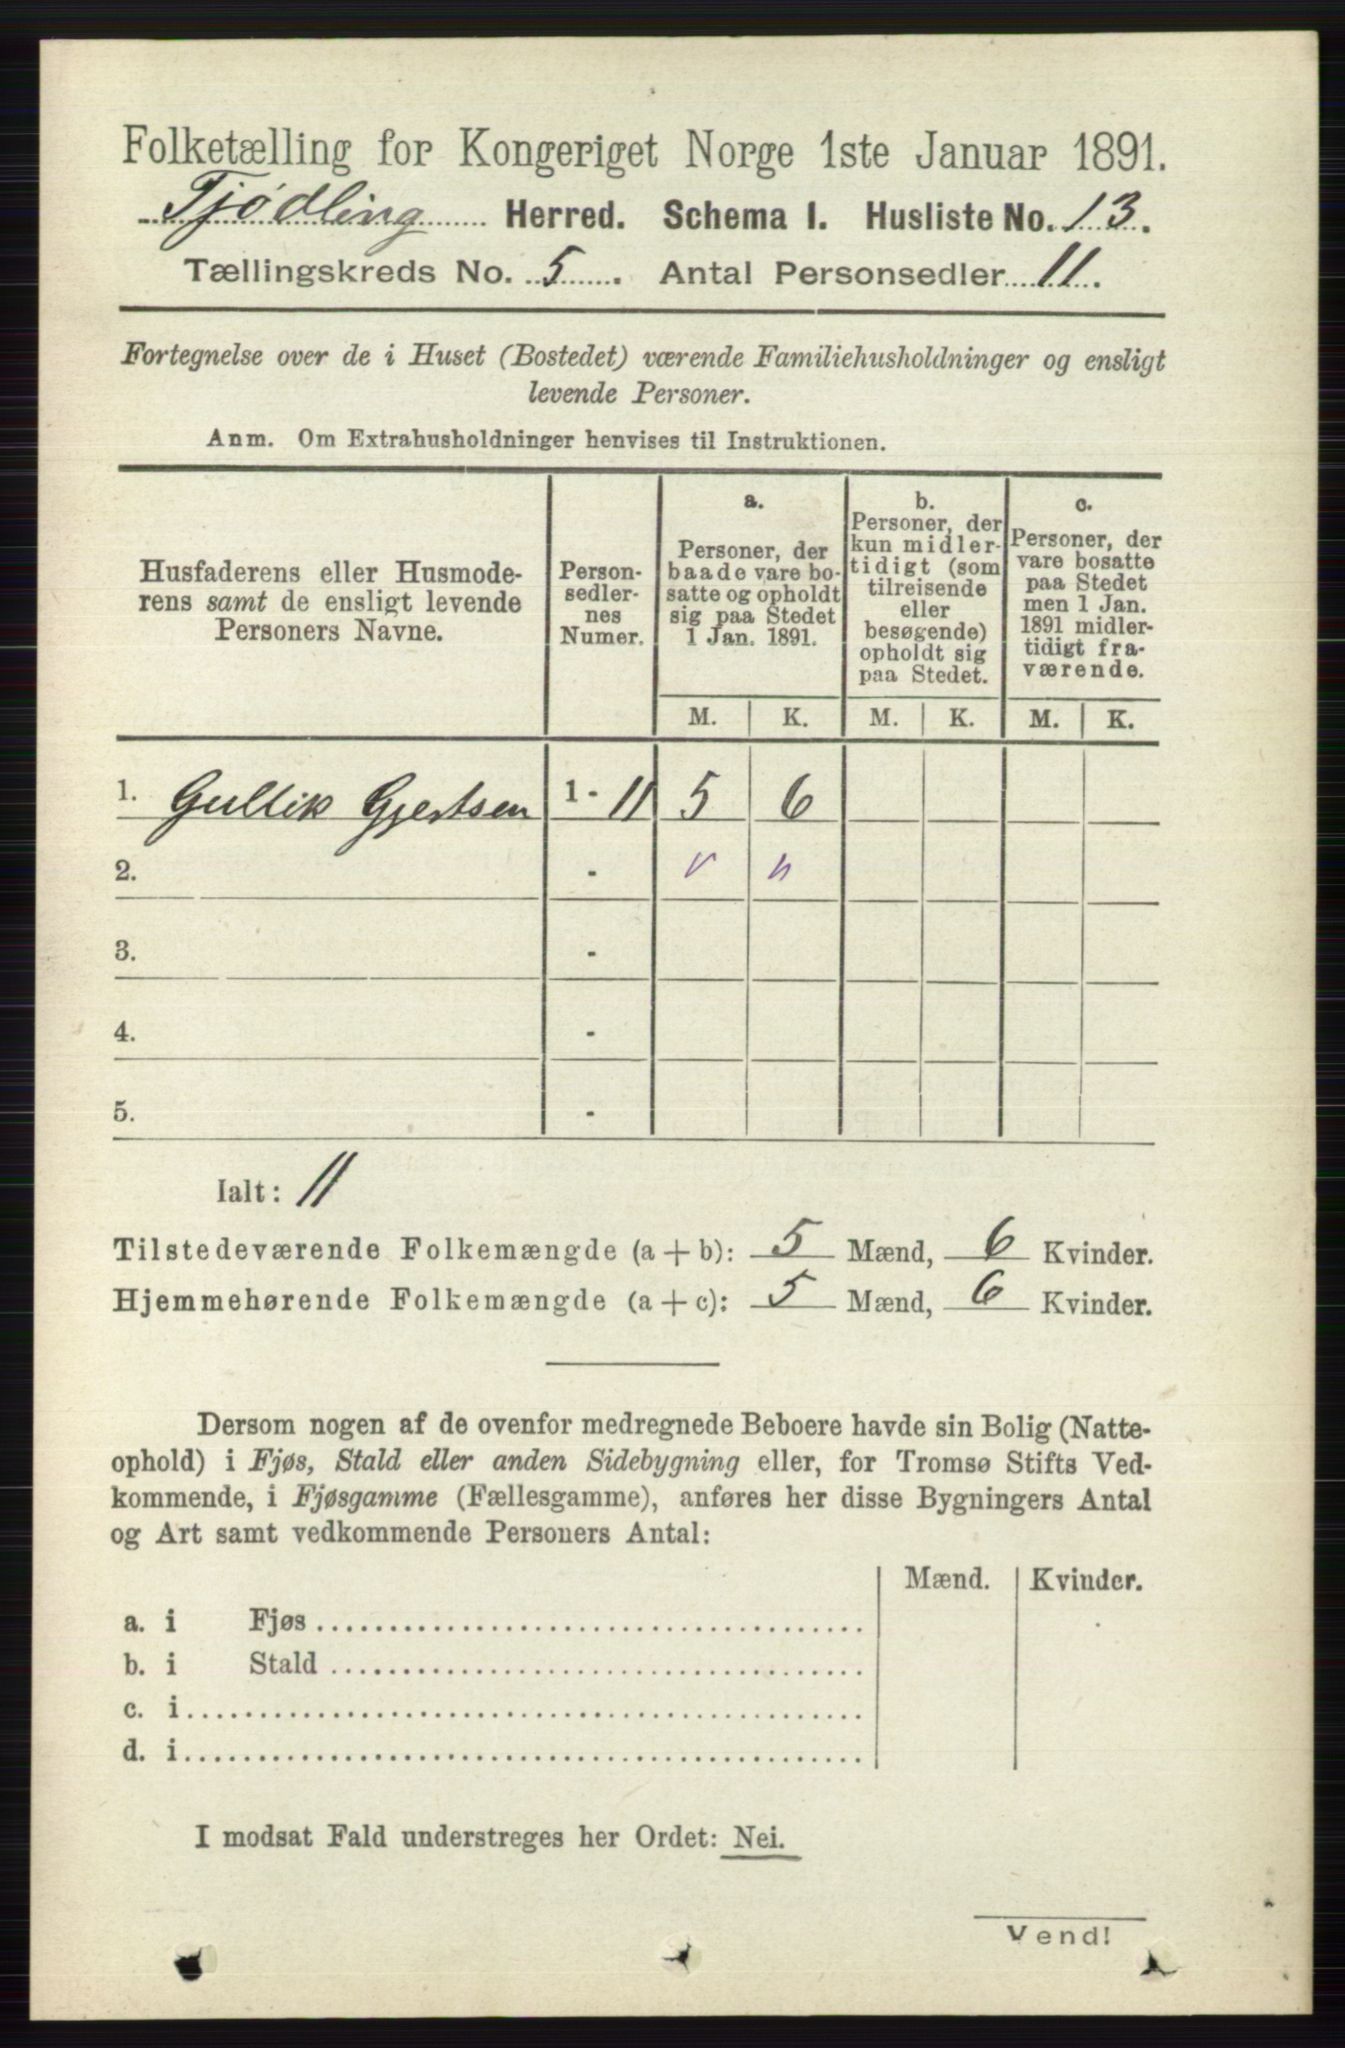 Folketælling for Kongeriget Norge 1ste Januar 1891.
Tjødling Herred. Schema I. Husliste No. 13.
Tællingskreds No. 5. Antal Personsedler 11.
Fortegnelse over de i Huset (Bostedet) værende Familiehusholdninger og ensligt
levende Personer.
Anm. Om Extrahusholdninger henvises til Instruktionen.
Husfaderens eller Husmode-
rens samt de ensligt levende
Personers Navne.
Person-
sedler-
nes
Numer.
a.
Personer, der
baade vare bo-
satte og opholdt
sig paa Stedet
1 Jan. 1891.
b.
Personer, der
kun midler-
tidigt (som
tilreisende
eller
besøgende)
opholdt sig
paa Stedet.
c.
Personer, der
vare bosatte
paa Stedet
men 1 Jan.
1891 midler-
tidigt fra-
værende.
M. K. M. K. M. K.
1. Gullik Gjertsen 1 - 11 5 6
2. -
3. -
4. -
5. -
Ialt: 11
Tilstedeværende Folkemængde (a + b): 5 Mænd, 6 Kvinder.
Hjemmehørende Folkemængde (a + c): 5 Mænd, 6 Kvinder.
Dersom nogen af de ovenfor medregnede Beboere havde sin Bolig (Natte-
ophold) i Fjøs, Stald eller anden Sidebygning eller, for Tromsø Stifts Ved-
kommende, i Fjøsgamme (Fællesgamme), anføres her disse Bygningers Antal
og Art samt vedkommende Personers Antal:
Mænd. Kvinder.
a. i Fjøs
b. i Stald
c. i
d. i
I modsat Fald understreges her Ordet: Nei.
Vend!